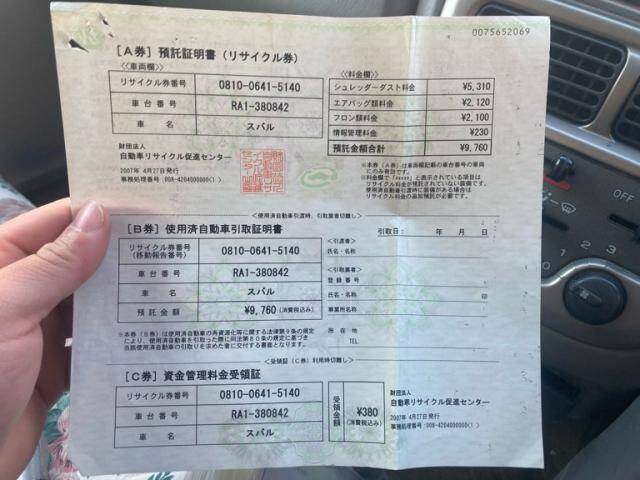 0075652069
[A券] 預託証明書 (リサイクル券)
<<車両欄>>
リサイクル券番号 0810-0641-5140
車台番号 RA1-380842
車名 スバル
<<料金欄>>
シュレッダーダスト料金 ¥5,310
エアバッグ類料金 ¥2,120
フロン類料金 ¥2,100
情報管理料金 ¥230
預託金額合計 ¥9,760
財団法人
自動車リサイクル促進センター
2007年 4月27日発行
※本券(A券)は車両欄記載の車台番号の車両
にのみ有効です。
<使用済自動車引渡時、引取業者切離し>
[B券] 使用済自動車引取証明書
引取日: 年 月 日
リサイクル券番号
(移動報告番号) 0810-0641-5140
車台番号 RA1-380842
車名 スバル
預託金額 ¥9,760 (消費税込み)
<引渡者>
氏名・名称
<引取業者>
登録番号
氏名・名称 印
事業所名称
所在地
TEL
※本券(B券)は使用済自動車の再資源化等に関する法律第9条の規定
により、使用済自動車を引取った際に同法第80条の規定に基づき
当該使用済自動車の引取りを求めた者に交付する書面となります。
<受領証(C券)利用時切離し>
[C券] 資金管理料金受領証
リサイクル券番号 0810-0641-5140
車台番号 RA1-380842
車名 スバル
受領金額 ¥380
(消費税込み)
財団法人
自動車リサイクル促進センター
2007年 4月27日発行
0 1 2 3 4